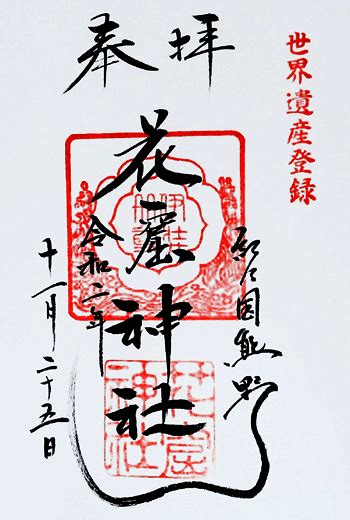 奉拝
世界遺産登録
国熊野
花窟神社
令和二年
十一月二十五日
花窟
神社